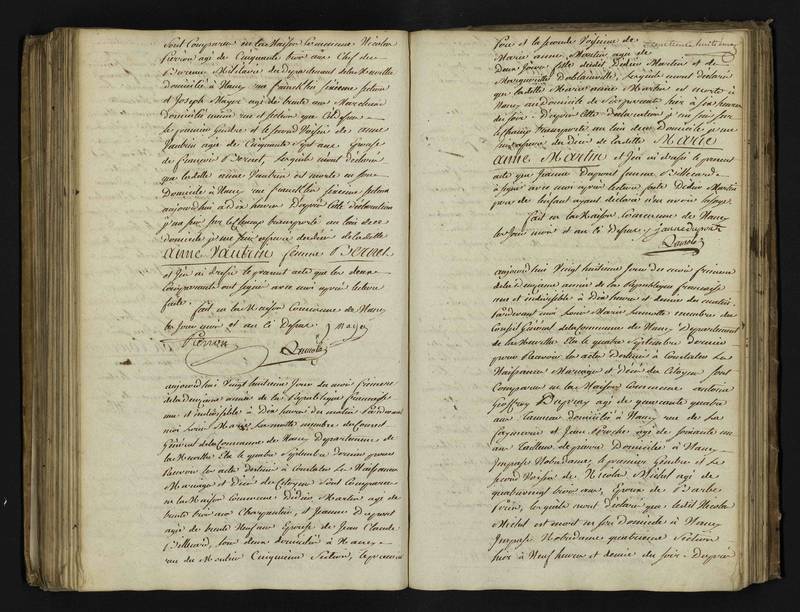 sont Comparus en la Maison Commune Nicolas
Pierron agé de Cinquante trois ans Chef du
Bureau Militaire du departement de la Meurthe
domicilié à Nancy rue francklin sixieme section
et Joseph Mayer agé de trente ans Marchand
Domicilié même rue et section que Cidessus
le premier Gendre et le second Voisin de anne
Vautrin agée de Cinquante sept ans Epouse
de françois Bernet, lesquels m'ont déclaré
que ladite anne Vautrin est morte en son
Domicile à Nancy rue francklin sixieme section
aujourdhui à dix heures D'après cette déclaration
je me suis sur le champ transporté au lieu de ce
domicile je me suis assuré du décès de ladite
anne Vautrin femme Bernet
et j'en ai dressé le present acte que les deux
comparants ont signé avec moi après lecture
faite. fait en la Maison Commune de Nancy
les Jour mois et an Ci dessus Mayer
Pierron
aujourdhui Vingt huitieme Jour du mois frimaire
de la deuxieme année de la Republique francaise
une et indivisible à Dix heures du matin Pardevant
moi Louis Marie Lamotte membre du Conseil
Général de la Commune de Nancy Departement de
la Meurthe Elu le quatre Septembre dernier pour
Recevoir les actes destinés à Constater les Naissances
Mariage et Décès des Citoyens Sont Comparus
en la Maison Commune Didier Martin agé de
trente trois ans Charpentier, et Jeanne Duprort
agée de trente neuf ans Epouse de Jean Claude
Billecard, tous deux domiciliés à Nancy
rue du Moulin Cinquieme Section, le premier
Pere et la seconde Voisine de
Marie anne Martin agée de
Deux Jours fille dudit Didier Martin et de
Marguerite Doblainville, lesquels m'ont déclaré
que ladite Marie anne Martin est morte à
Nancy au domicile de ses parents hier à six heures
du soir. D'après cette declaration je me suis sur
le champ transporté au lieu de ce Domicile je me
suis assuré du décès de ladite Marie
anne Martin et j'en ai dressé le present
acte que Jeanne Duprort femme Billecard
a signé avec moi après lecture faite Didier Martin
pere de l'enfant ayant déclaré n'en avoir l'usage.
fait en la Maison Commune de Nancy
les Jour mois et an Ci dessus
aujourdhui Vingt huitieme Jour du mois frimaire
de la deuxieme année de la Republique francaise
une et indivisible à Dix heures et demie du matin
Pardevant moi Louis Marie Lamotte membre du
Conseil Général de la Commune de Nancy Departement
de la Meurthe Elu le quatre Septembre dernier
pour Recevoir les actes Destinés à Constater les
Naissances Mariage et Décès des Citoyens sont
Comparus en la Maison Commune antoine
Geoffroy agé de quarante quatre
ans Tanneur domicilié à Nancy rue de la
et Jean agé de soixante un
ans Tailleur de pierre Domicilié à Nancy
Impasse Notre dame, le premier Gendre et le
second Voisin de Nicolas Michel agé de
quatre vingt trois ans, Epoux de Barbe
lesquels m'ont déclaré que ledit Nicolas
Michel est mort en son Domicile à Nancy
Impasse Notredame quatrieme Section
hier à Neuf heures et demie du soir. D'après